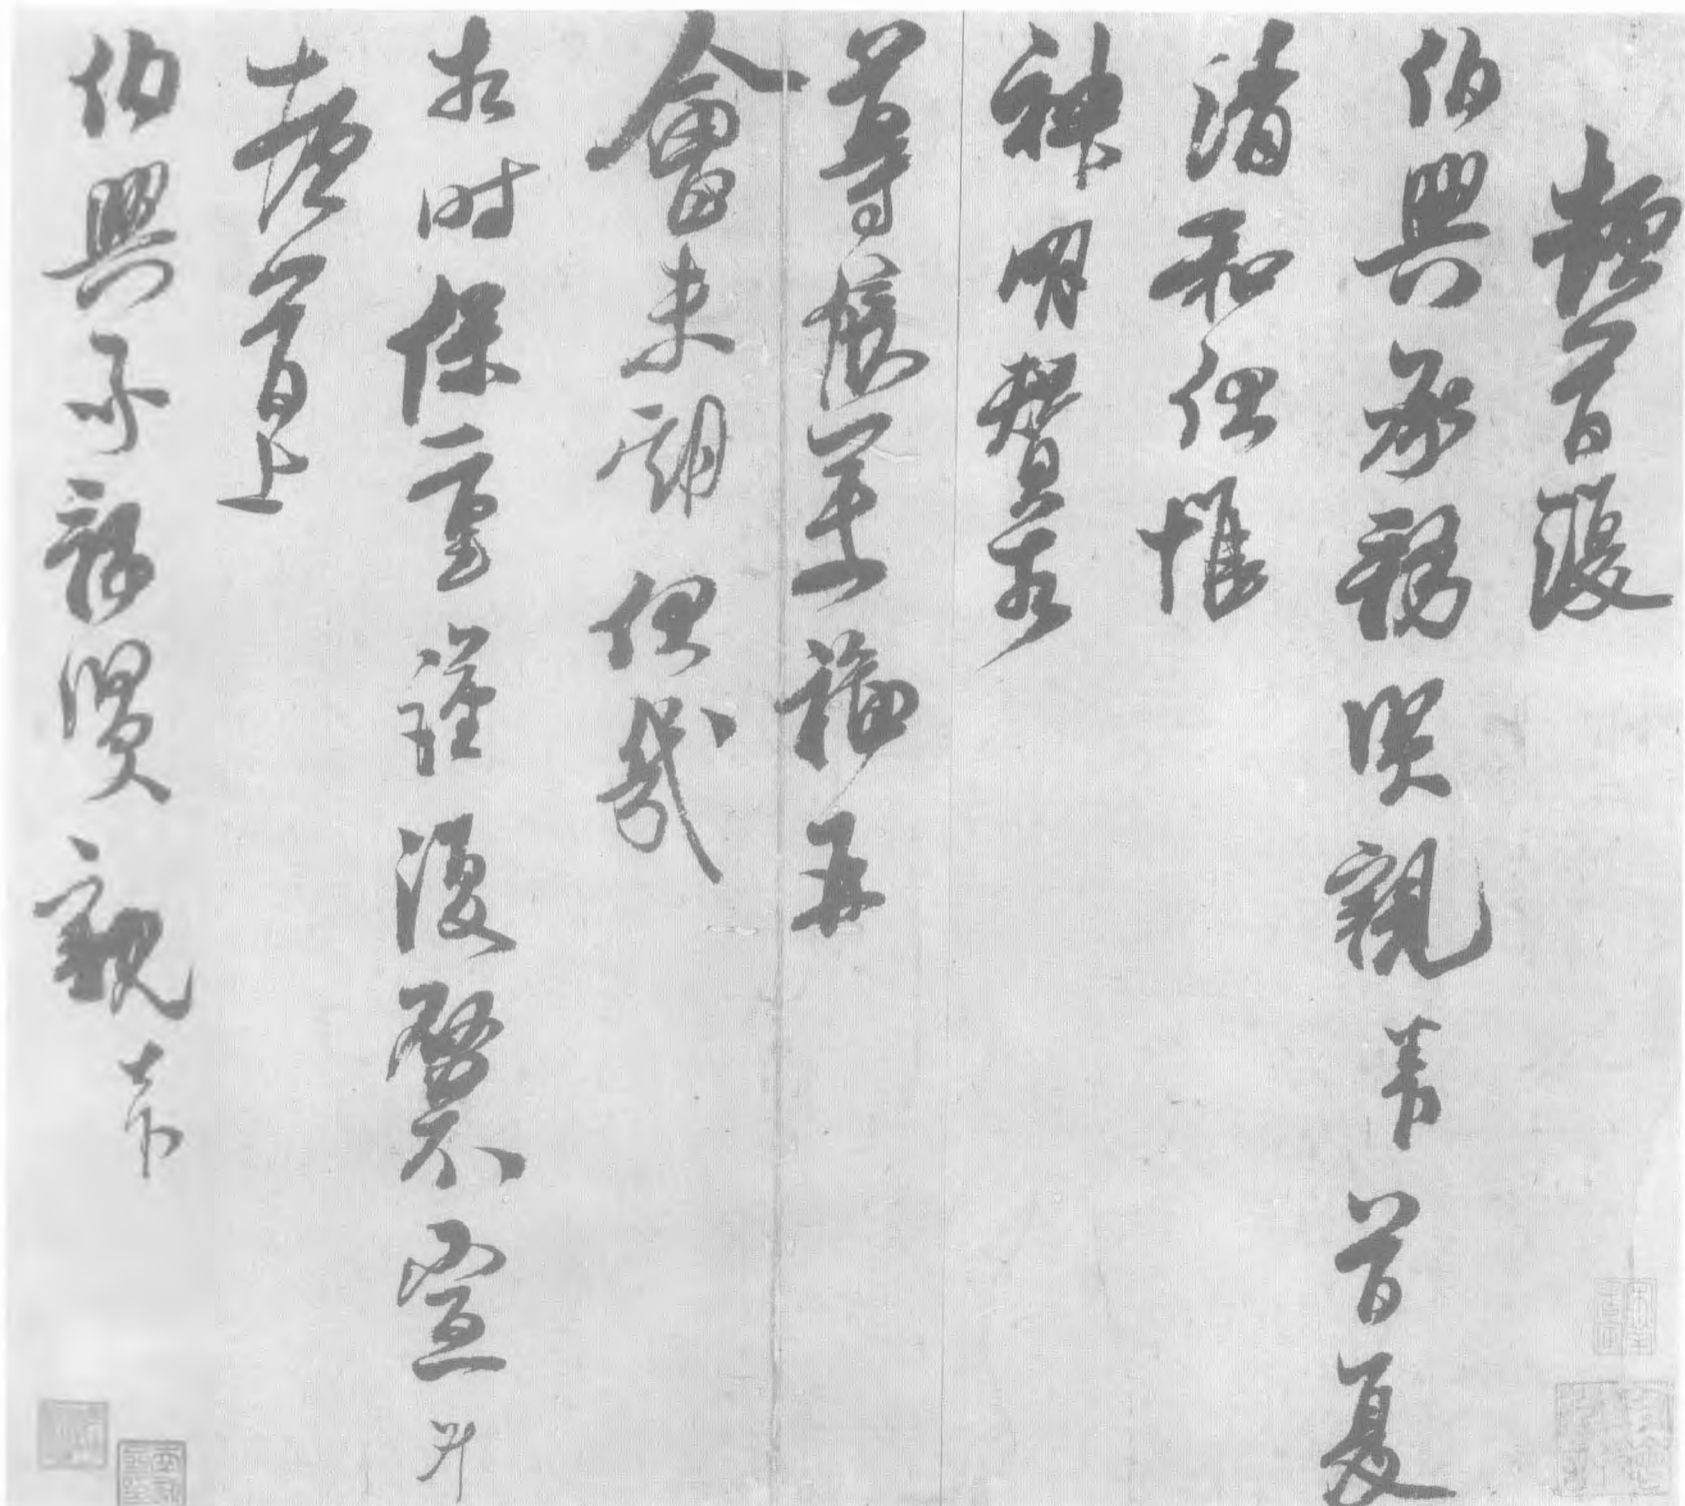 頓首復
伯興承務賢親 首夏
清和伏惟
神明贊相
尊候萬福再
會未期伏冀
時保重謹復啓不宣
頓首上
伯興承務賢親